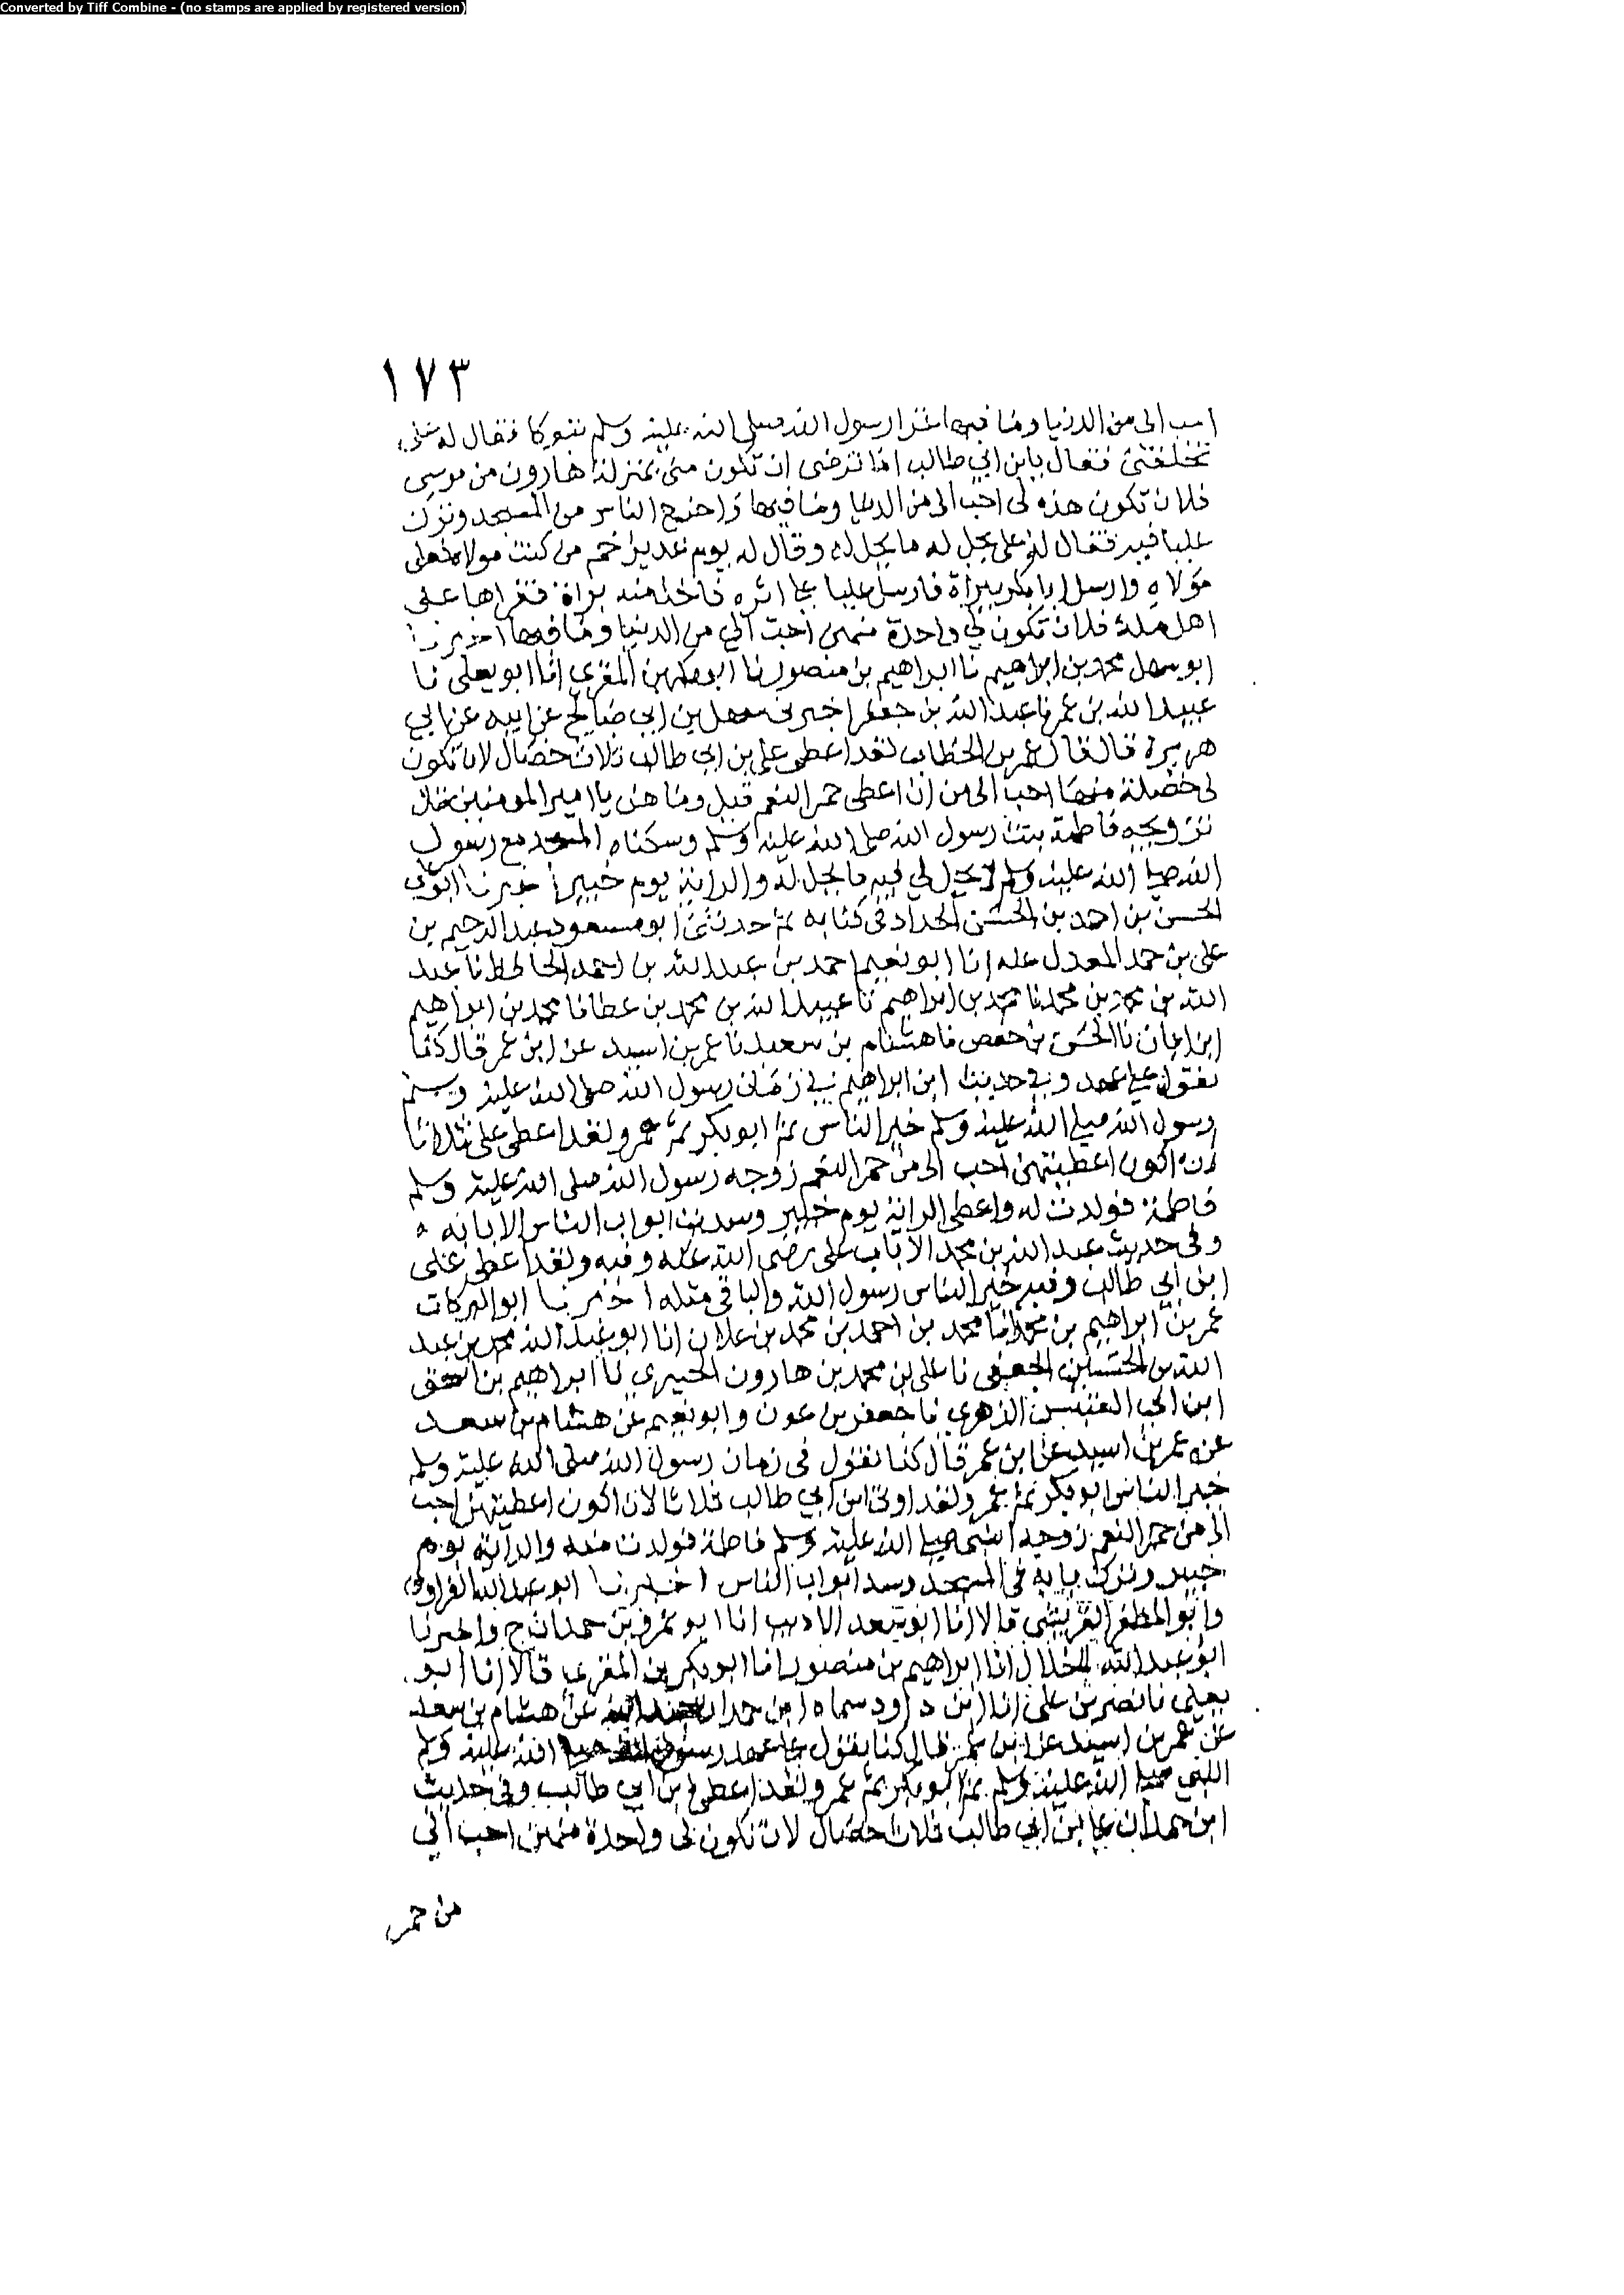 Converted by Tiff Combine - (no stamps are applied by registered version)
١٧٣
احب الى من الدنيا وما فيها غزا رسول الله صلى الله عليه وسلم تبوكا فقال له على
تخلفنى فقال يابن ابي طالب اما ترضى ان تكون منى بمنزلة هارون من موسى
فلان تكون هذه لى احب الى من الدنيا وما فيها واخرج الناس من المسجد وترك
عليا فيه فقال له على يحل له ما يحل له وقال له يوم غدير خم من كنت مولاه فعلى
مولاه وارسل ابا بكر ببراة فارسل عليا على اثره فاخذ منه براة فقراها على
اهل مكة فلان تكون لي واحدة منهن احب الي من الدنيا وما فيها اخبرنا
ابو سهل محمد بن ابراهيم نا ابراهيم بن منصور نا ابو بكر بن المقري انا ابو يعلى نا
عبيد الله بن عمر نا عبد الله بن جعفر اخبرنى سهل بن ابي صالح عن ابيه عن ابي
هريرة قال قال عمر بن الخطاب لقد اعطى على بن ابي طالب ثلاث خصال لان تكون
لى خصلة منها احب الى من ان اعطى حمر النعم قيل وما هن يا امير المومنين قال
تزويجه فاطمة بنت رسول الله صلى الله عليه وسلم وسكناه المسجد مع رسول
الله صلى الله عليه وسلم لا يحل لي فيه ما يحل له والراية يوم خيبر اخبرنا ابو على
الحسن بن احمد بن الحسن الحداد فى كتابه ثم حدثنى ابو مسعود عبد الرحيم بن
على بن حمد المعدل عنه انا ابو نعيم احمد بن عبد الله بن احمد الحافظ نا عبد
الله بن محمد بن محمد نا محمد بن ابراهيم نا عبيد الله بن محمد بن عطا نا محمد بن ابراهيم
ابن ابان نا الحسن بن حفص نا هشام بن سعيد نا عمر بن اسيد عن ابن عمر قال كنا
نقول على عهد وفي حديث ابن ابراهيم في زمان رسول الله صلى الله عليه وسلم
رسول الله صلى الله عليه وسلم خير الناس ثم ابو بكر ثم عمر ولقد اعطى على ثلاثا
لان اكون اعطيتهن احب الى من حمر النعم زوجه رسول الله صلى الله عليه وسلم
فاطمة فولدت له واعطى الراية يوم خيبر وسدت ابواب الناس الا بابه
وفى حديث عبد الله بن محمد الا باب على رضى الله عنه وفيه ولقد اعطى على
ابن ابي طالب وفيه خير الناس رسول الله والباقي مثله اخبرنا ابو البركات
عمر بن ابراهيم بن محمد انا محمد بن احمد بن محمد بن علان انا ابو عبد الله محمد بن عبد
الله بن الحسين الجعفى نا على بن محمد بن هارون الحميري نا ابراهيم بن اسحق
ابن ابي العنبس الزهري نا جعفر بن عون وابو نعيم عن هشام بن سعد
عن عمر بن اسيد عن ابن عمر قال كنا نقول فى زمان رسول الله صلى الله عليه وسلم
خير الناس ابو بكر ثم عمر ولقد اوتى ابن ابي طالب ثلاثا لان اكون اعطيتهن احب
الى من حمر النعم زوجه النبى صلى الله عليه وسلم فاطمة فولدت منه والراية يوم
خيبر وترك بابه فى المسجد وسد ابواب الناس اخبرنا ابو عبد الله الفراوى
وابو المظفر القشيرى قالا انا ابو سعد الاديب انا ابو عمرو بن حمدان ح واخبرنا
ابو عبد الله الخلال انا ابراهيم بن منصور انا ابو بكر بن المقري قالا انا ابو
يعلى نا نصر بن على انا ابن داود سماه ابن حمدان عبد الله عن هشام بن سعد
عن عمر بن اسيد عن ابن عمر قال كنا نقول على عهد رسول الله صلى الله عليه وسلم
النبي صلى الله عليه وسلم ثم ابو بكر ثم عمر ولقد اعطى ابن ابي طالب وفى حديث
ابن حمدان على بن ابي طالب ثلاث خصال لان تكون لى واحدة منهن احب الي
من حمر